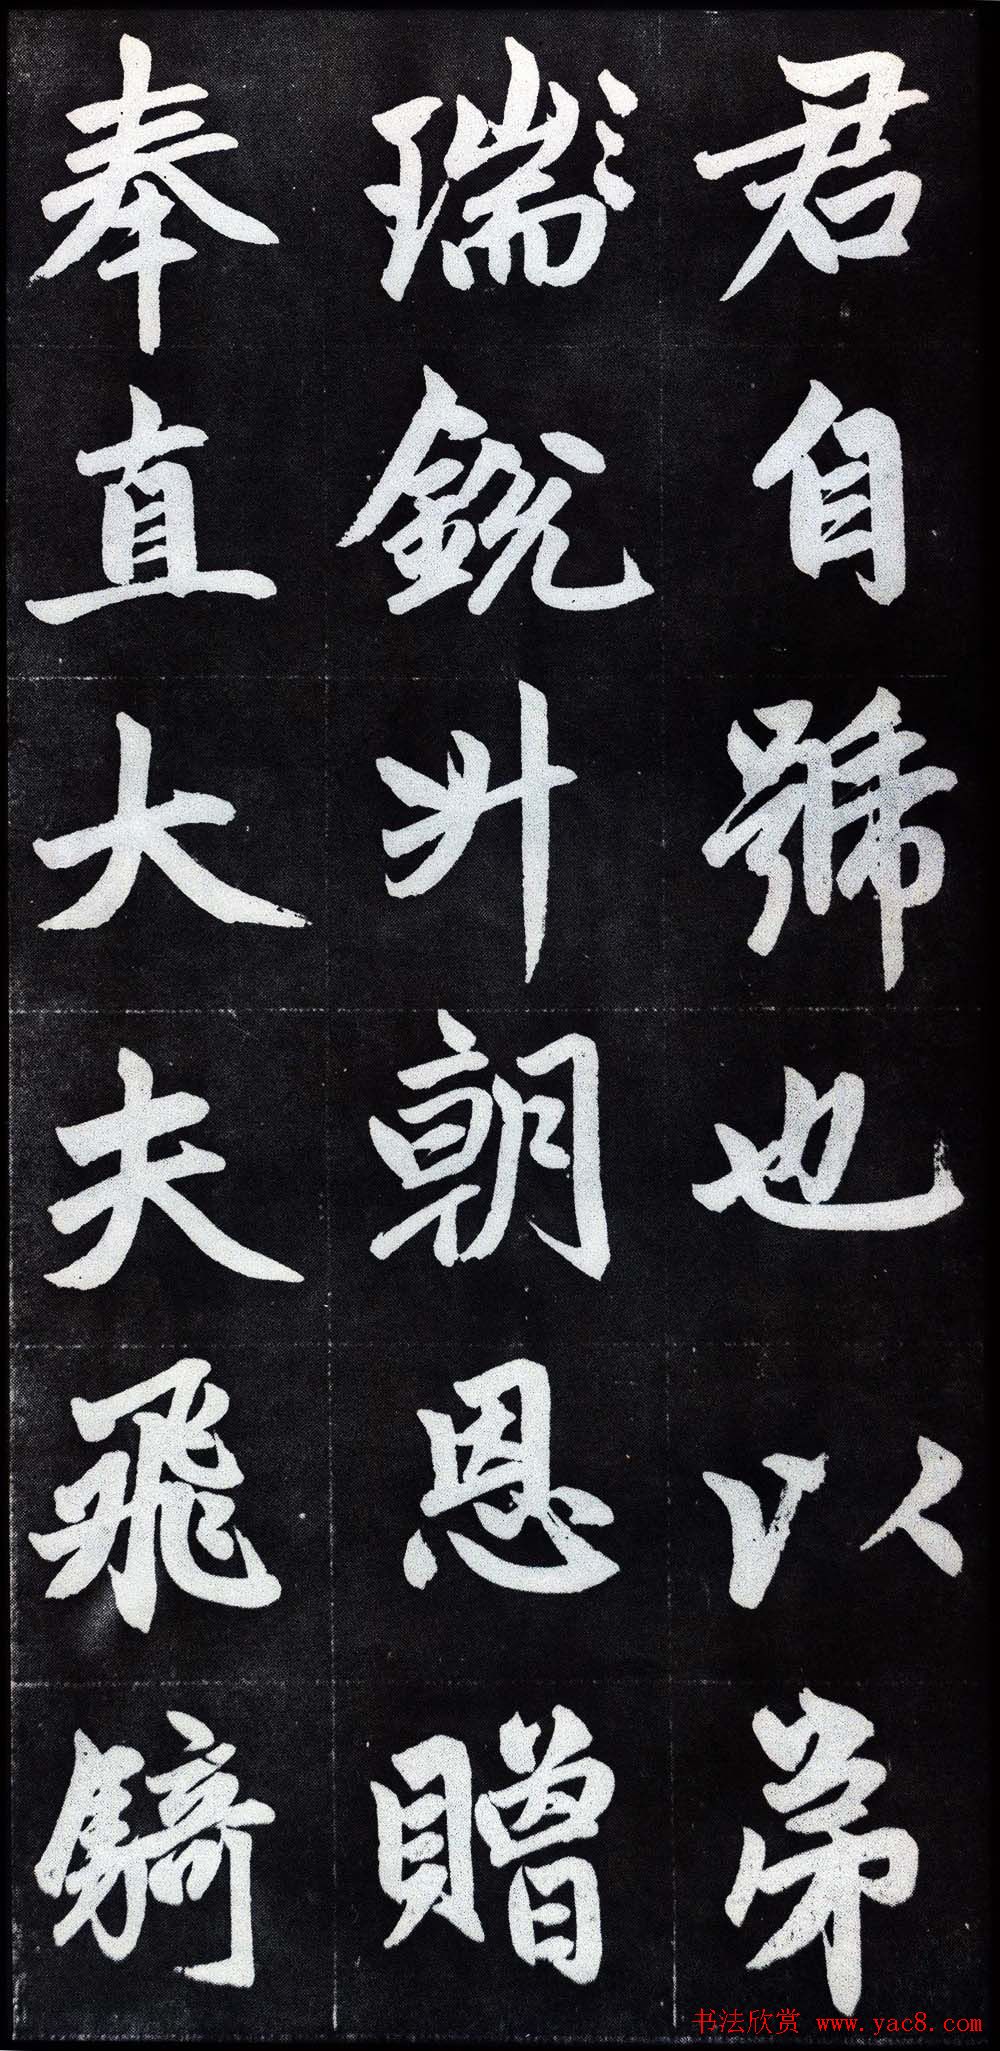 君自號也以弟
瑞銳升朝恩贈
奉直大夫飛騎
书法欣赏 www.yac8.com